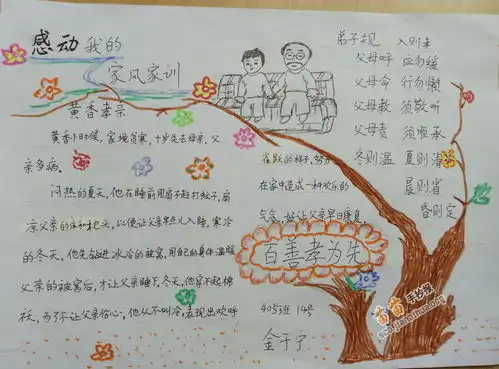 感动我的
家风家训
黄香孝亲
黄香小时候,家境贫寒,十岁失去母亲,父
亲多病。
闷热的夏天,他在睡前用扇子赶打蚊子,扇
凉父亲的床和枕头,以便让父亲早点儿入睡,寒冷
的冬天,他先钻进冰冷的被窝,用自己的身体温暖
父亲的被窝后,才让父亲睡下,冬天,他穿不起棉
袄,为了不让父亲伤心,他从不叫冷,表现出欢呼
雀跃的样子,努力
在家中造成一种欢乐的
气氛,好让父亲早日康复。
弟子规 入则孝
父母呼 应勿缓
父母命 行勿懒
父母教 须敬听
父母责 须顺承
冬则温 夏则凊
晨则省
昏则定
百善孝为先
405班 14号
金于宁
苗苗手抄报